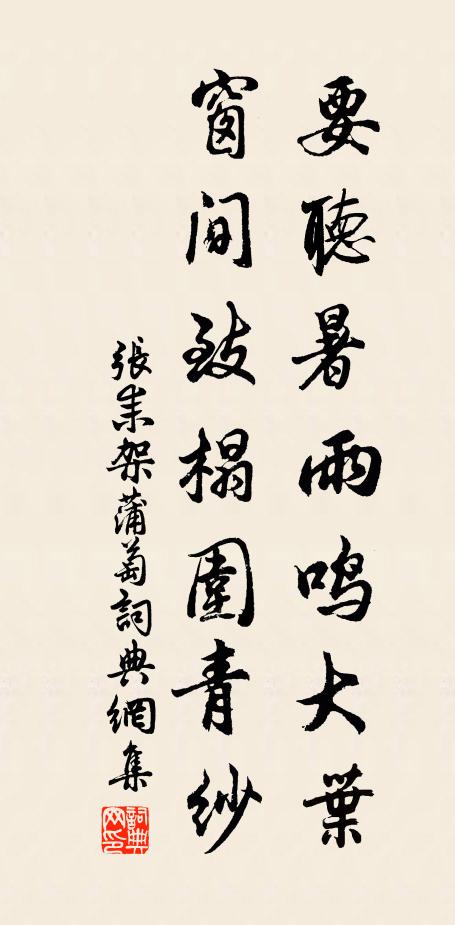 要聽暑雨鳴大葉
窗间致榻圍青紗
張耒架蒲萄詞典網集
詞典网印